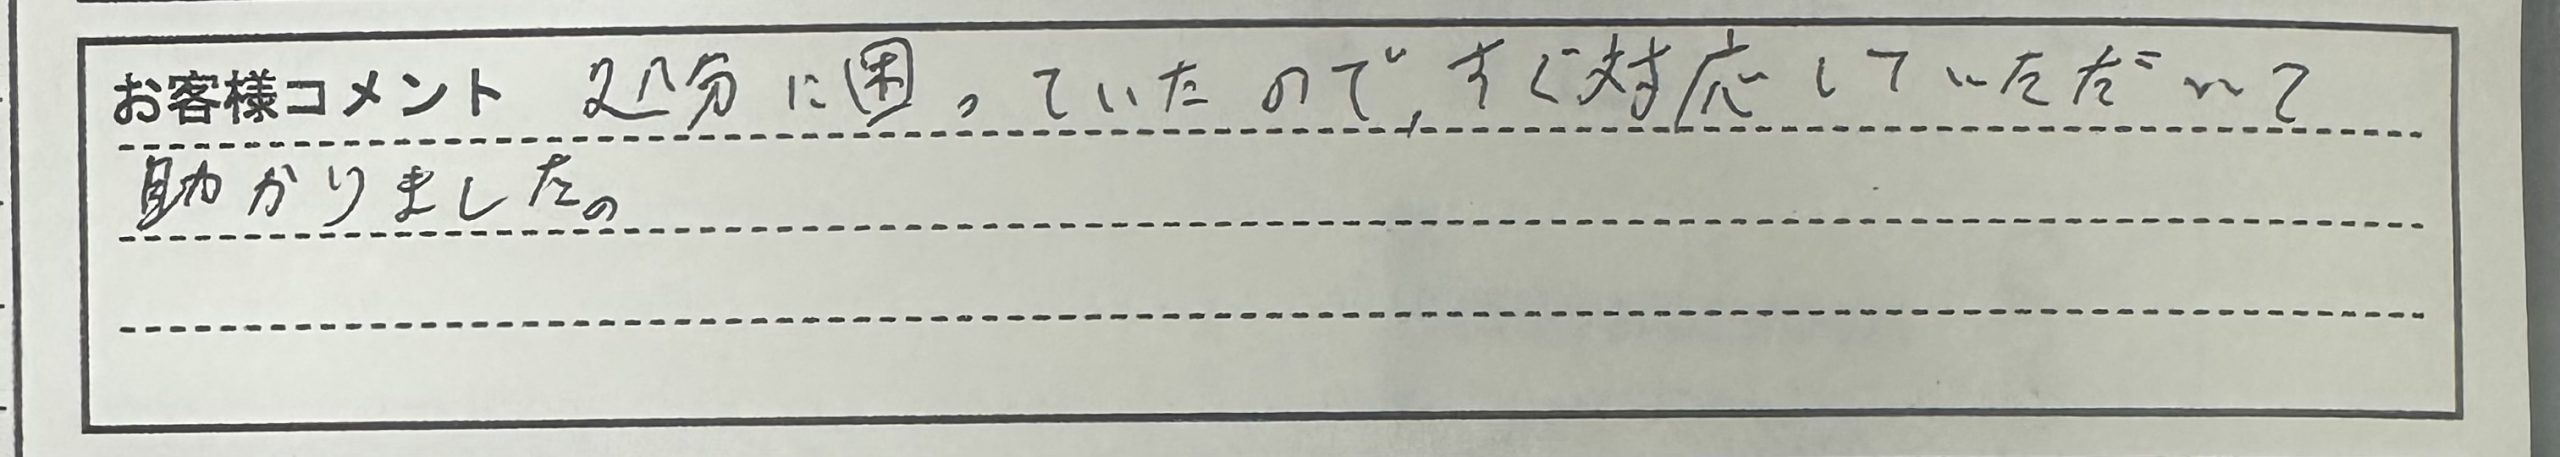 お客様コメント 処分に困っていたので、すぐ対応していただいて
助かりました。